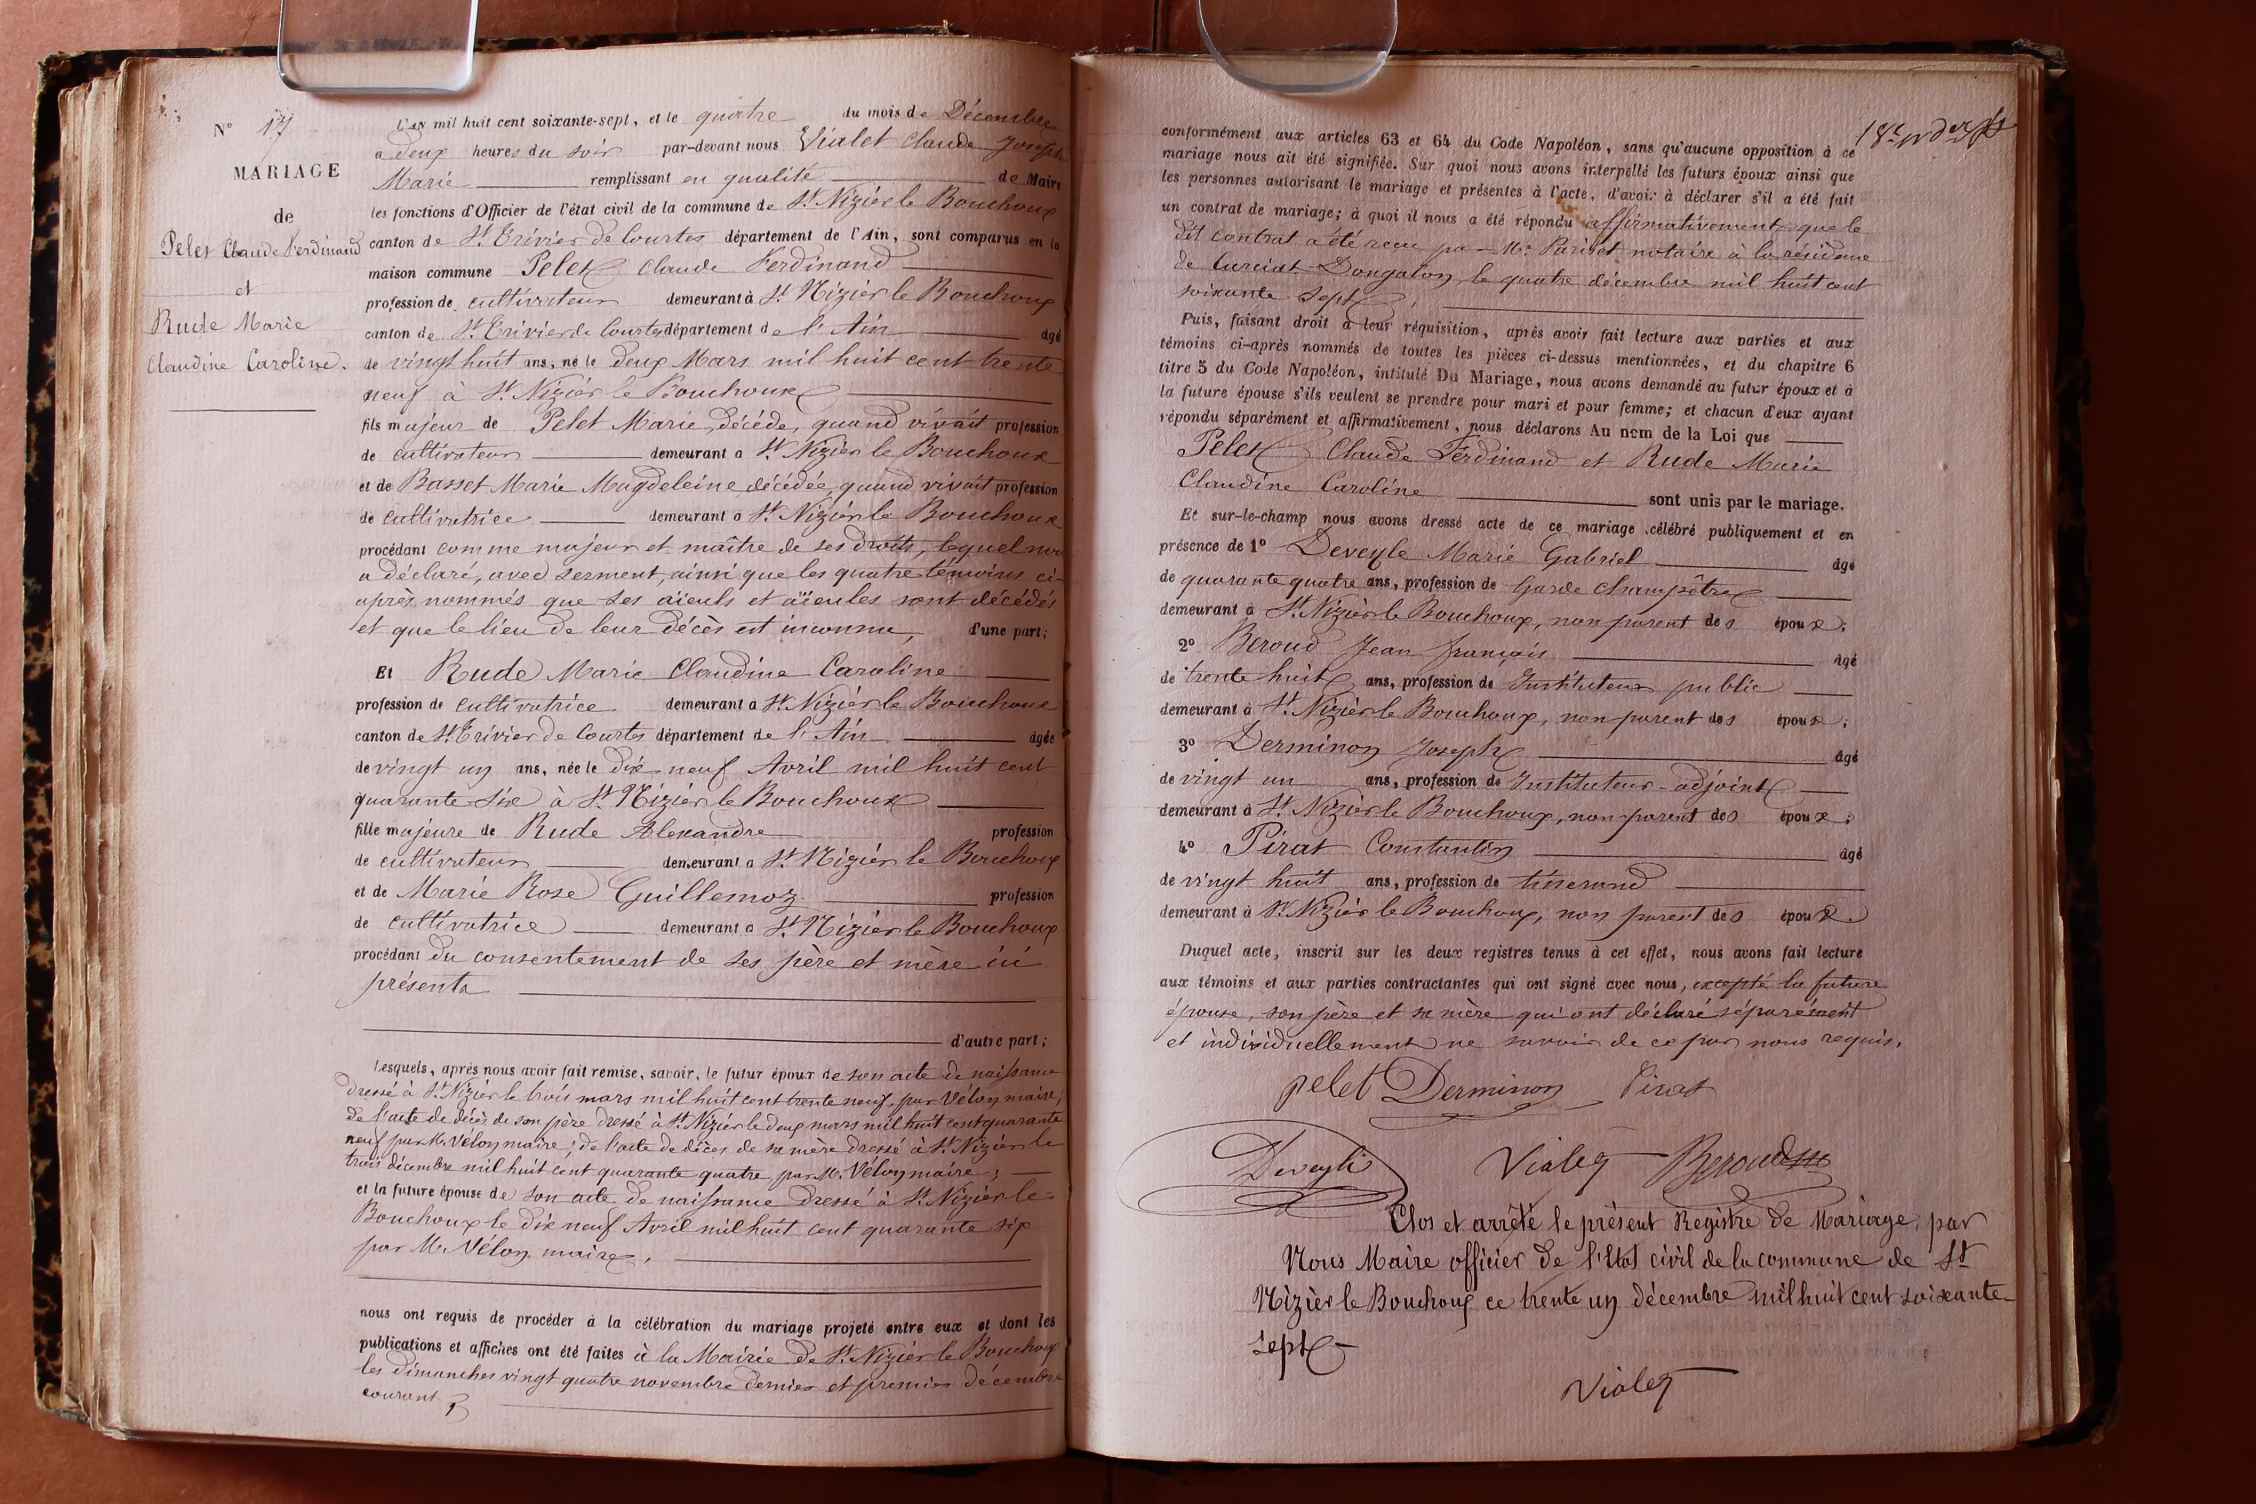 N° 17
MARIAGE
de
Pelet Claude Ferdinand
et
Rude Marie
Claudine Caroline.
L'an mil huit cent soixante-sept, et le quatre du mois de Décembre
a deux heures du soir par-devant nous Vialet Claude Joseph
Marie remplissant en qualité de Maire
les fonctions d'Officier de l'état civil de la commune de St Nizier le Bouchoux
canton de St Trivier de Courtes département de l'Ain, sont comparus en la
maison commune Pelet Claude Ferdinand
profession de cultivateur demeurant à St Nizier le Bouchoux
canton de St Trivier de Courtes département de l'Ain âgé
de vingt huit ans, né le deux Mars mil huit cent trente
neuf à St Nizier le Bouchoux
fils majeur de Pelet Marie, décédé, quand vivait profession
de cultivateur demeurant a St Nizier le Bouchoux
et de Basset Marie Magdeleine, décédée, quand vivait profession
de cultivatrice demeurant a St Nizier le Bouchoux
procédant comme majeur et maître de ses droits, lequel nous
a déclaré, avec serment, ainsi que les quatre témoins ci-
après nommés que ses aïeuls et aïeules sont décédés
et que le lieu de leur décès est inconnu, d'une part;
Et Rude Marie Claudine Caroline
profession de cultivatrice demeurant a St Nizier le Bouchoux
canton de St Trivier de Courtes département de l'Ain âgée
de vingt un ans, née le dix neuf Avril mil huit cent
quarante six à St Nizier le Bouchoux
fille majeure de Rude Alexandre profession
de cultivateur demeurant a St Nizier le Bouchoux
et de Marie Rose Guillemoz profession
de cultivatrice demeurant a St Nizier le Bouchoux
procédant du consentement de ses père et mère ici
présents
d'autre part;
Lesquels, après nous avoir fait remise, savoir, le futur époux de son acte de naissance
dressé à St Nizier le trois mars mil huit cent trente neuf, par Véloy maire,
de l'acte de décès de son père dressé à St Nizier le deux mars mil huit cent quarante
neuf par M. Véloy maire; de l'acte de décès de sa mère dressé à St Nizier le
trois décembre mil huit cent quarante quatre par M. Véloy maire;
et la future épouse de son acte de naissance dressé à St Nizier le
Bouchoux le dix neuf Avril mil huit cent quarante six
par M. Véloy maire,
nous ont requis de procéder à la célébration du mariage projeté entre eux et dont les
publications et affiches ont été faites à la Mairie de St Nizier le Bouchoux
les dimanches vingt quatre novembre dernier et premier décembre
courant
conformément aux articles 63 et 64 du Code Napoléon, sans qu'aucune opposition à ce
mariage nous ait été signifiée. Sur quoi nous avons interpellé les futurs époux ainsi que
les personnes autorisant le mariage et présentes à l'acte, d'avoir à déclarer s'il a été fait
un contrat de mariage; à quoi il nous a été répondu affirmativement que le
dit contrat a été reçu par Me notaire à la résidence
de Curciat-Dongalon le quatre décembre mil huit cent
soixante sept;
Puis, faisant droit à leur réquisition, après avoir fait lecture aux parties et aux
témoins ci-après nommés de toutes les pièces ci-dessus mentionnées, et du chapitre 6
titre 5 du Code Napoléon, intitulé Du Mariage, nous avons demandé au futur époux et à
la future épouse s'ils veulent se prendre pour mari et pour femme; et chacun d'eux ayant
répondu séparément et affirmativement, nous déclarons Au nom de la Loi que
Pelet Claude Ferdinand et Rude Marie
Claudine Caroline sont unis par le mariage.
Et sur-le-champ nous avons dressé acte de ce mariage célébré publiquement et en
présence de 1° Deveyle Marie Gabriel âgé
de quarante quatre ans, profession de Garde champêtre
demeurant à St Nizier le Bouchoux, non parent des époux;
2° Beroud Jean françois âgé
de trente huit ans, profession de Instituteur public
demeurant à St Nizier le Bouchoux, non parent des époux;
3° Derminon Joseph âgé
de vingt un ans, profession de Instituteur-adjoint
demeurant à St Nizier le Bouchoux, non parent des époux;
4° Pirat Constantin âgé
de vingt huit ans, profession de tisserand
demeurant à St Nizier le Bouchoux, non parent des époux
Duquel acte, inscrit sur les deux registres tenus à cet effet, nous avons fait lecture
aux témoins et aux parties contractantes qui ont signé avec nous, excepté la future
épouse, son père et sa mère qui ont déclaré séparément
et individuellement ne savoir de ce par nous requis.
pelet Derminon Pirat
Deveyle Vialet Beroud
Clos et arrêté le présent Registre de Mariage, par
Nous Maire officier de l'Etat civil de la commune de St
Nizier le Bouchoux ce trente un décembre mil huit cent soixante
sept
Vialet